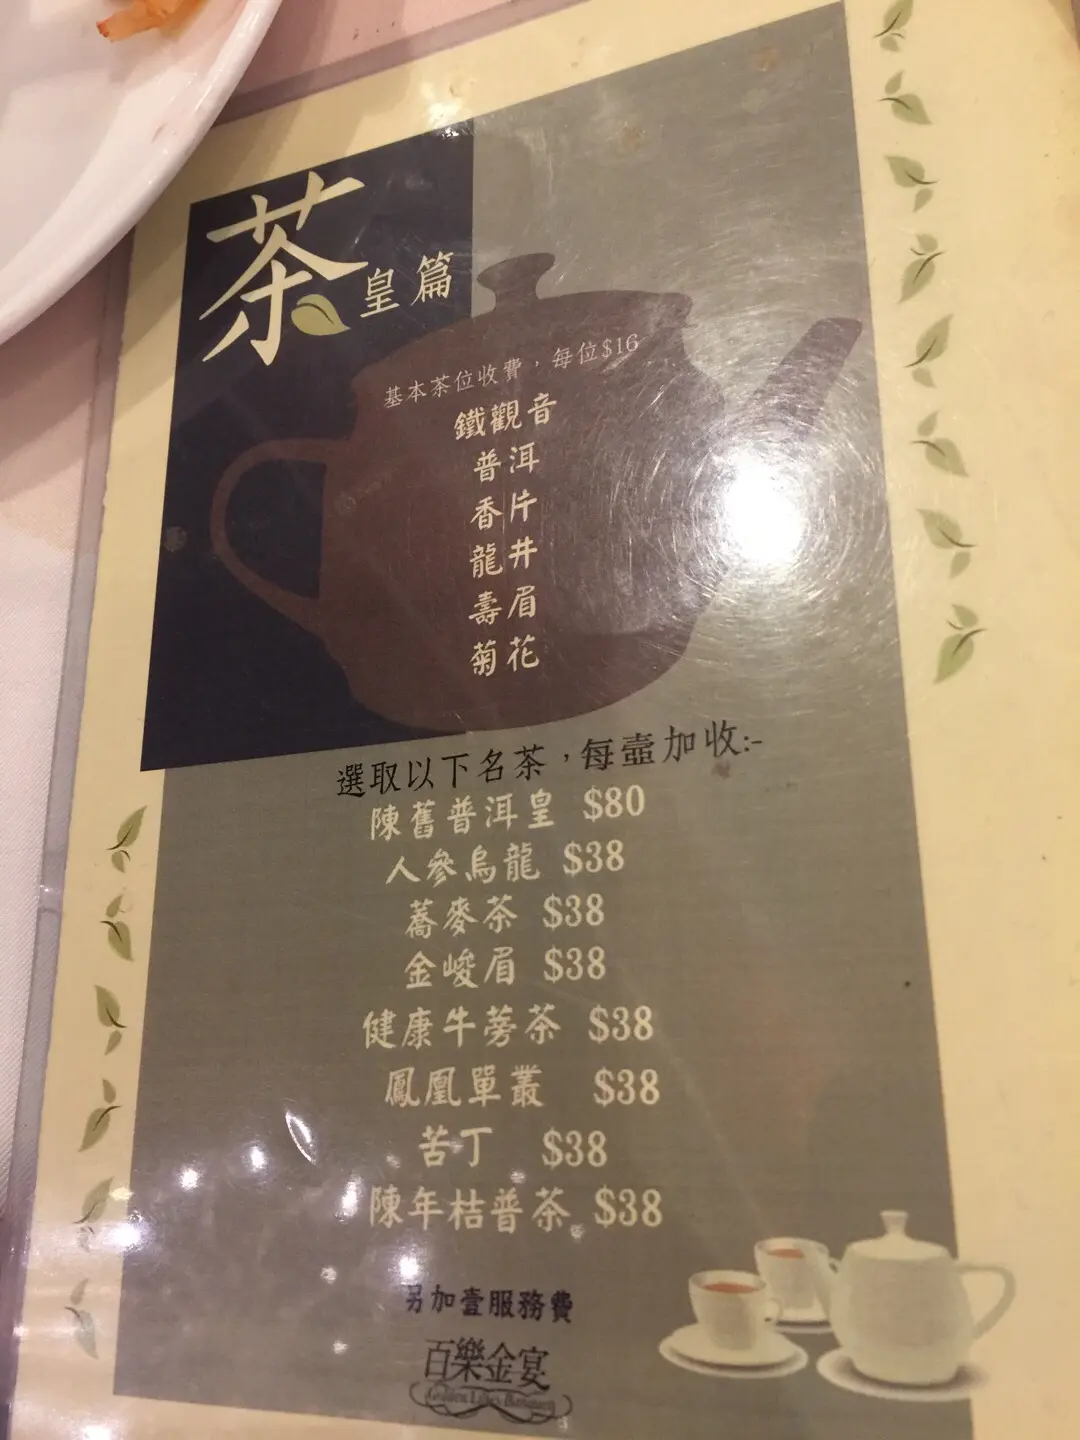 茶皇篇
基本茶位收費，每位$16
鐵觀音
普洱
香片
龍井
壽眉
菊花
選取以下名茶，每壺加收:-
陳舊普洱皇 $80
人參烏龍 $38
蕎麥茶 $38
金峻眉 $38
健康牛蒡茶 $38
鳳凰單叢 $38
苦丁 $38
陳年桔普茶 $38
另加壹服務費
百樂金宴
Golden